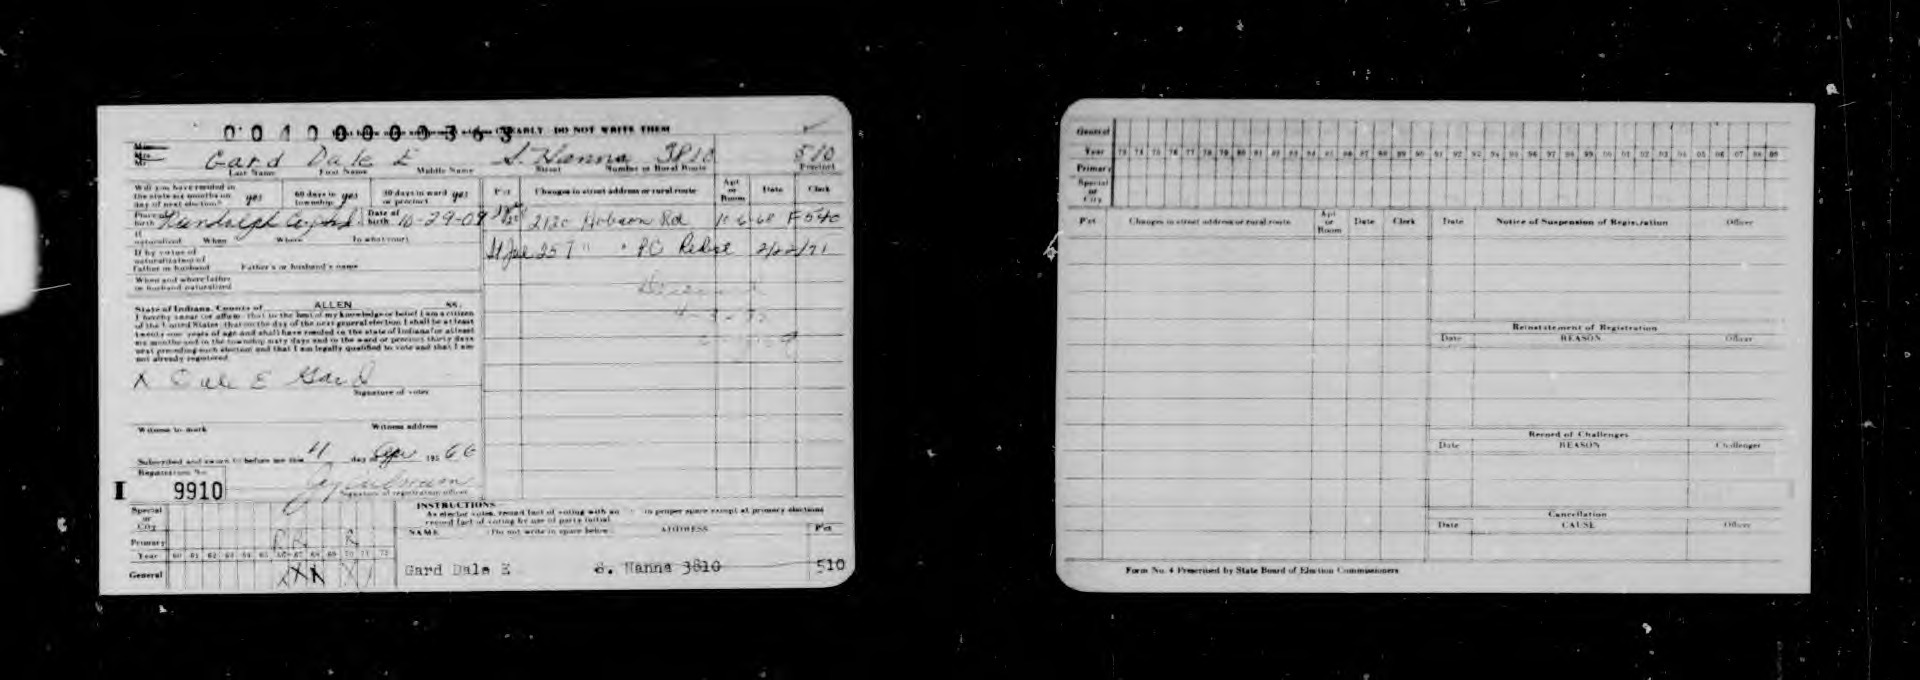 0 0 4 0 0 0 0 0 3 6 3
CLEARLY DO NOT WRITE THEM
Mrs
Mr
Gard Dale E S. Hanna 3810 510
Last Name First Name Middle Name Street Number or Rural Route Precinct
Will you have resided in the state six months on day of next election? yes 60 days in township yes 30 days in ward or precinct yes
Pct Changes in street address or rural route Apt or Room Date Clerk
Place of birth Randolph Co Ind Date of birth 10-29-09
2120 Hobson Rd 10-6-68 F540
If naturalized When Where In what court
St Joe 25 7 " " PC Rebse 2/22/71
If by virtue of naturalization of Father or husband Father's or husband's name
When and where father or husband naturalized
State of Indiana, County of ALLEN SS:
I hereby swear (or affirm) that to the best of my knowledge or belief I am a citizen
of the United States; that on the day of the next general election I shall be at least
twenty-one years of age and shall have resided in the state of Indiana for at least
six months and in the township sixty days and in the ward or precinct thirty days
next preceding such election and that I am legally qualified to vote and that I am
not already registered.
X Dale E Gard
Signature of voter
Witness to mark Witness address
Subscribed and sworn to before me this 4 day of Apr 195 66
Registration No.
I 9910
Signature of registration officer
INSTRUCTIONS
As elector votes, record fact of voting with an in proper space except at primary elections
record fact of voting by use of party initial
NAME (Do not write in space below) ADDRESS Pct
Special or City
Primary R R R
Year 60 61 62 63 64 65 66 67 68 69 70 71 72
General X X X X /
Gard Dale E S. Hanna 3810 510
General
Year 73 74 75 76 77 78 79 80 81 82 83 84 85 86 87 88 89 90 91 92 93 94 95 96 97 98 99 00 01 02 03 04 05 06 07 08 09
Primary
Special or City
Pct Changes in street address or rural route Apt or Room Date Clerk Date Notice of Suspension of Registration Officer
Reinstatement of Registration
Date REASON Officer
Record of Challenges
Date REASON Challenger
Cancellation
Date CAUSE Officer
Form No. 4 Prescribed by State Board of Election Commissioners